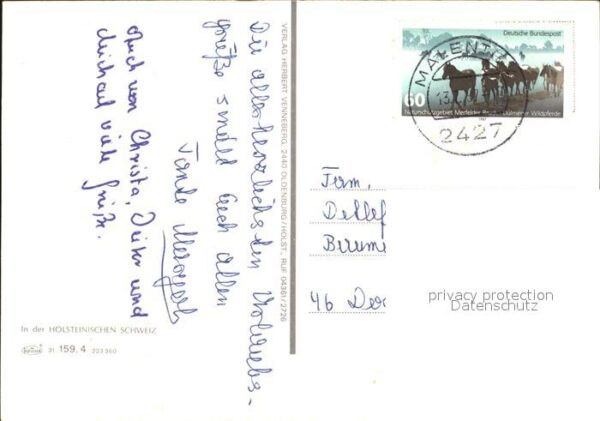 Die allerherzlichsten Urlaubs-
grüße sendet Euch allen
Tante Margareth
Auch von Christa, Dieter und
Michael viele Grüße.
In der HOLSTEINISCHEN SCHWEIZ
31 159.4 223 360
VERLAG HERBERT VENNEBERG, 2440 OLDENBURG/HOLST., RUF 04361/2726
Deutsche Bundespost
60
Naturschutzgebiet Merfelder Bruch Dülmener Wildpferde
MALENTE
2427
Fam.
Detlef
46 Do
privacy protection
Datenschutz